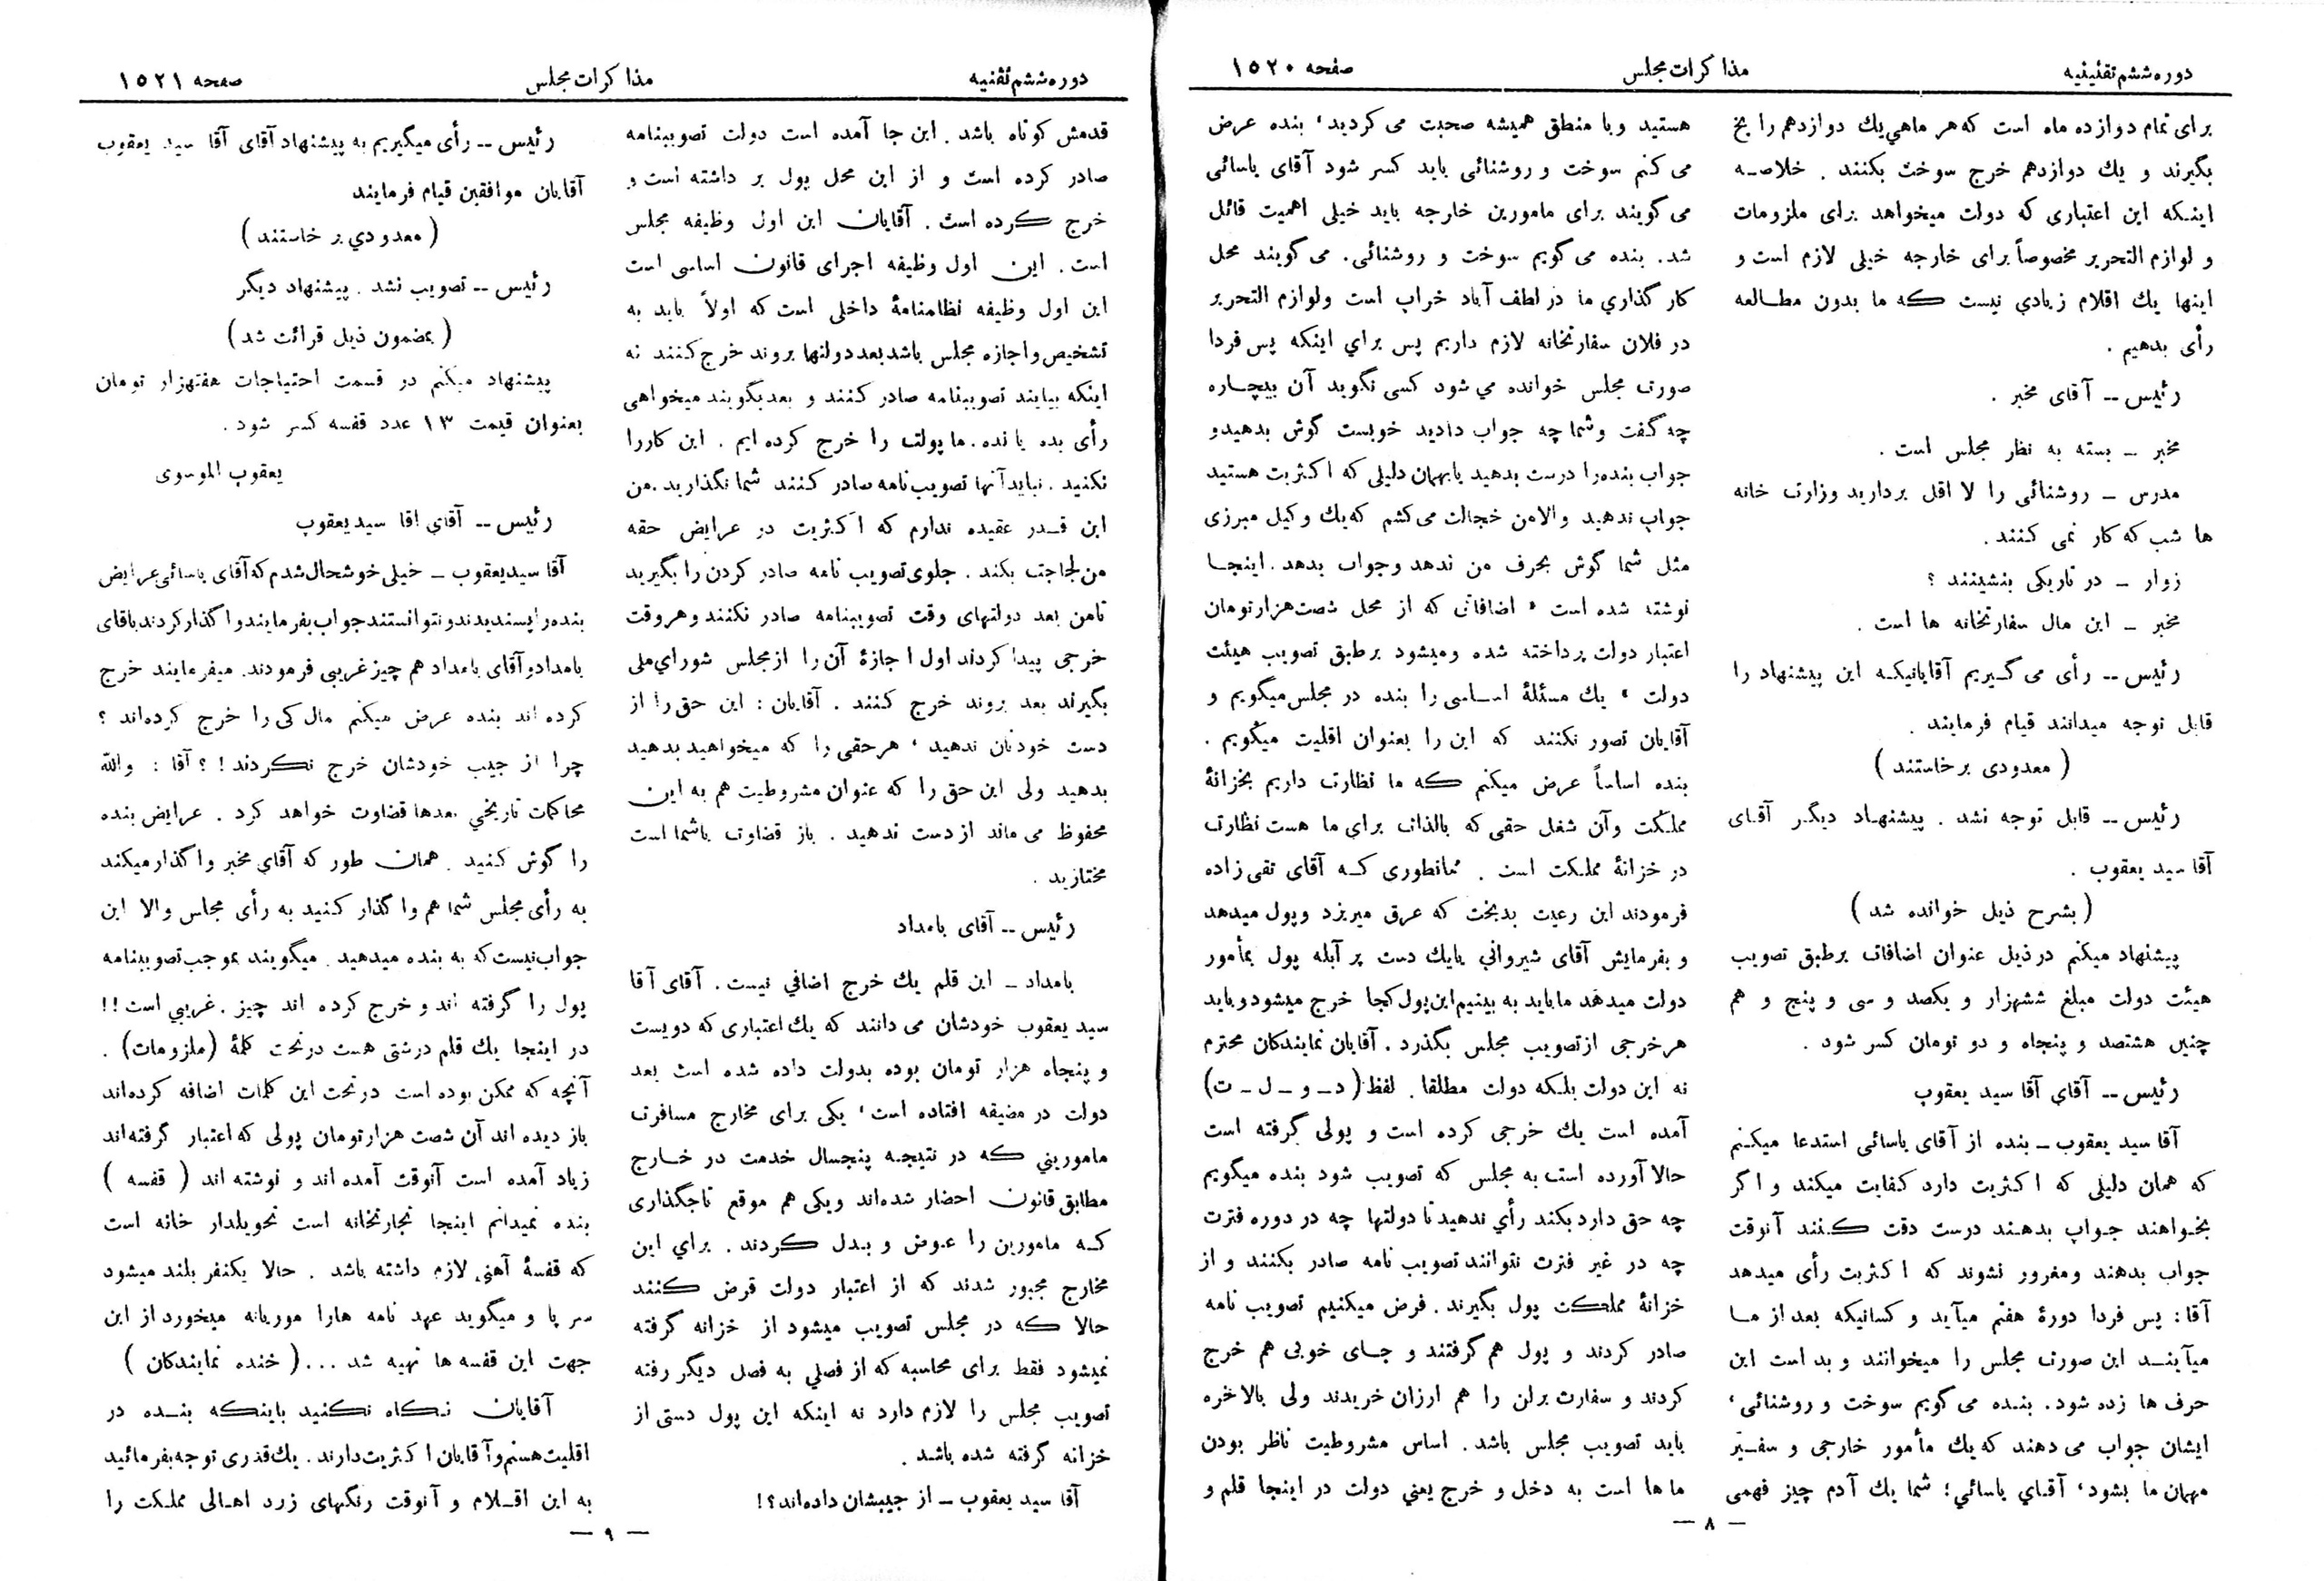 دوره ششم تقنینیه
مذاکرات مجلس
صفحه ۱۵۲۰
برای تمام دوازده ماه است که هر ماهي يك دوازدهم را یخ
بگیرند و يك دوازدهم خرج سوخت بکنند . خلاصه
اینکه این اعتباری که دولت میخواهد برای ملزومات
و لوازم التحریر مخصوصاً برای خارجه خیلی لازم است و
اینها يك اقلام زیادي نیست که ما بدون مطالعه
رأی بدهیم .
رئیس -- آقای مخبر .
مخبر - بسته به نظر مجلس است .
مدرس - روشنائی را لا اقل بردارید وزارت خانه
ها شب که کار نمی کنند .
زوار - در تاریکی بنشینند ؟
مخبر - این مال سفارتخانه ها است .
رئیس -- رأی می گیریم آقایانیکه این پیشنهاد را
قابل توجه میدانند قیام فرمایند .
( معدودی برخاستند )
رئیس -- قابل توجه نشد . پیشنهاد دیگر آقای
آقا سید یعقوب .
( بشرح ذیل خوانده شد )
پیشنهاد میکنم در ذیل عنوان اضافات برطبق تصویب
هیئت دولت مبلغ ششهزار و یکصد و سی و پنج و هم
چنین هشتصد و پنجاه و دو تومان کسر شود .
رئیس -- آقاي آقا سید یعقوب
آقا سید یعقوب - بنده از آقای یاسائی استدعا میکنم
که همان دلیلی که اکثریت دارد کفایت میکند و اگر
بخواهند جواب بدهند درست دقت کنند آنوقت
جواب بدهند و مغرور نشوند که اکثریت رأی میدهد
آقا : پس فردا دورهٔ هفتم میآید و کسانیکه بعد از ما
میآیند این صورت مجلس را میخوانند و بد است این
حرف ها زده شود . بنده می گویم سوخت و روشنائی ،
ایشان جواب می دهند که يك مأمور خارجی و سفیر
مهمان ما بشود ، آقاي یاسائي ؛ شما يك آدم چیز فهمی
هستید و با منطق همیشه صحبت می کردید ، بنده عرض
می کنم سوخت و روشنائی باید کسر شود آقای یاسائی
می گویند برای مامورین خارجه باید خیلی اهمیت قائل
شد . بنده می گویم سوخت و روشنائی . می گویند محل
کارگذاري ما در لطف آباد خراب است و لوازم التحریر
در فلان سفارتخانه لازم داریم پس براي اینکه پس فردا
صورت مجلس خوانده می شود کسی نگوید آن بیچاره
چه گفت و شما چه جواب دادید خوبست گوش بدهید و
جواب بنده را درست بدهید یا بهمان دلیلی که اکثریت هستید
جواب ندهید و الا من خجالت می کشم که يك وکیل مبرزی
مثل شما گوش بحرف من ندهد و جواب بدهد . اینجا
نوشته شده است « اضافاتی که از محل شصت هزار تومان
اعتبار دولت پرداخته شده و میشود برطبق تصویب هیئت
دولت » يك مسئلهٔ اساسی را بنده در مجلس میگویم و
آقایان تصور نکنند که این را بعنوان اقلیت میگویم .
بنده اساساً عرض میکنم که ما نظارت داریم بخزانهٔ
مملکت و آن شغل حقی که بالذات برای ما هست نظارت
در خزانهٔ مملکت است . همانطوری که آقای تقی زاده
فرمودند این رعیت بدبخت که عرق میریزد و پول میدهد
و بفرمایش آقای شیرواني با يك دست پر آبله پول بمأمور
دولت میدهد ما باید به بینیم این پول کجا خرج میشود و باید
هر خرجی از تصویب مجلس بگذرد . آقایان نمایندگان محترم
نه این دولت بلکه دولت مطلقا . لفظ ( د - و - ل - ت )
آمده است يك خرجی کرده است و پولی گرفته است
حالا آورده است به مجلس که تصویب شود بنده میگویم
چه حق دارد بکند رأي ندهید تا دولتها چه در دوره فترت
چه در غیر فترت نتوانند تصویب نامه صادر بکنند و از
خزانهٔ مملکت پول بگیرند . فرض میکنیم تصویب نامه
صادر کردند و پول هم گرفتند و جای خوبی هم خرج
کردند و سفارت برلن را هم ارزان خریدند ولی بالاخره
باید تصویب مجلس باشد . اساس مشروطیت ناظر بودن
ما ها است به دخل و خرج یعني دولت در اینجا قلم و
— ۸ —
دوره ششم تقنیه
مذاکرات مجلس
صفحه ۱۵۲۱
قدمش کوتاه باشد . این جا آمده است دولت تصویبنامه
صادر کرده است و از این محل پول بر داشته است و
خرج کرده است . آقایان این اول وظیفه مجلس
است . این اول وظیفه اجرای قانون اساسی است
این اول وظیفه نظامنامهٔ داخلی است که اولاً باید به
تشخیص و اجازه مجلس باشد بعد دولتها بروند خرج کنند نه
اینکه بیایند تصویبنامه صادر کنند و بعد بگویند میخواهی
رأی بده یا نده . ما پولت را خرج کرده ایم . این کار را
نکنید . نباید آنها تصویب نامه صادر کنند شما نگذارید . من
این قدر عقیده ندارم که اکثریت در عرایض حقه
من لجاجت بکند . جلوی تصویب نامه صادر کردن را بگیرید
تا من بعد دولتهای وقت تصویبنامه صادر نکنند و هر وقت
خرجی پیدا کردند اول اجازهٔ آن را از مجلس شورای ملی
بگیرند بعد بروند خرج کنند . آقایان : این حق را از
دست خودتان ندهید ، هر حقی را که میخواهید بدهید
بدهید ولی این حق را که عنوان مشروطیت هم به این
محفوظ می ماند از دست ندهید . باز قضاوت با شما است
مختارید .
رئیس -- آقای بامداد
بامداد - این قلم يك خرج اضافي نیست . آقای آقا
سید یعقوب خودشان می دانند که يك اعتباری که دویست
و پنجاه هزار تومان بوده بدولت داده شده است بعد
دولت در مضیقه افتاده است ، یکی برای مخارج مسافرت
مامورینی که در نتیجه پنجسال خدمت در خارج
مطابق قانون احضار شده‌اند و یکی هم موقع تاجگذاری
که مامورین را عوض و بدل کردند . براي این
مخارج مجبور شدند که از اعتبار دولت قرض کنند
حالا که در مجلس تصویب میشود از خزانه گرفته
نمیشود فقط برای محاسبه که از فصلي به فصل دیگر رفته
تصویب مجلس را لازم دارد نه اینکه این پول دستی از
خزانه گرفته شده باشد .
آقا سید یعقوب - از جیبشان داده‌اند ؟!
رئیس -- رأی میگیریم به پیشنهاد آقای آقا سید یعقوب
آقایان موافقین قیام فرمایند
( معدودي بر خاستند )
رئیس -- تصویب نشد . پیشنهاد دیگر
( بمضمون ذیل قرائت شد )
پیشنهاد میکنم در قسمت احتیاجات هفتهزار تومان
بعنوان قیمت ۱۳ عدد قفسه کسر شود .
یعقوب الموسوی
رئیس -- آقاي اقا سید یعقوب
آقا سید یعقوب - خیلی خوشحال شدم که آقای یاسائی عرایض
بنده را پسندیدند و نتوانستند جواب بفرمایند واگذار کردند باقای
بامداد و آقای بامداد هم چیز غریبی فرمودند . میفرمایند خرج
کرده اند بنده عرض میکنم مال کی را خرج کرده‌اند ؟
چرا از جیب خودشان خرج نکردند ! ؟ آقا : والله
محاکمات تاریخي بعدها قضاوت خواهد کرد . عرایض بنده
را گوش کنید . همان طور که آقاي مخبر واگذار میکند
به رأی مجلس شما هم واگذار کنید به رأی مجلس والا این
جواب نیست که به بنده میدهید . میگویند بموجب تصویبنامه
پول را گرفته اند و خرج کرده اند چیز . غریبي است !!
در اینجا يك قلم درشتی هست در تحت کلمهٔ (ملزومات) .
آنچه که ممکن بوده است در تحت این کلمات اضافه کرده‌اند
باز دیده اند آن شصت هزار تومان پولی که اعتبار گرفته‌اند
زیاد آمده است آنوقت آمده اند و نوشته اند ( قفسه )
بنده نمیدانم اینجا تجارتخانه است تحویلدار خانه است
که قفسهٔ آهنی لازم داشته باشد . حالا یکنفر بلند میشود
سر پا و میگوید عهد نامه هارا موریانه میخورد از این
جهت این قفسه ها تهیه شد ... ( خنده نمایندگان )
آقایان نگاه نکنید باینکه بنده در
اقلیت هستم و آقایان اکثریت دارند . يك قدری توجه بفرمائید
به این اقلام و آنوقت رنگهای زرد اهالی مملکت را
— ۹ —